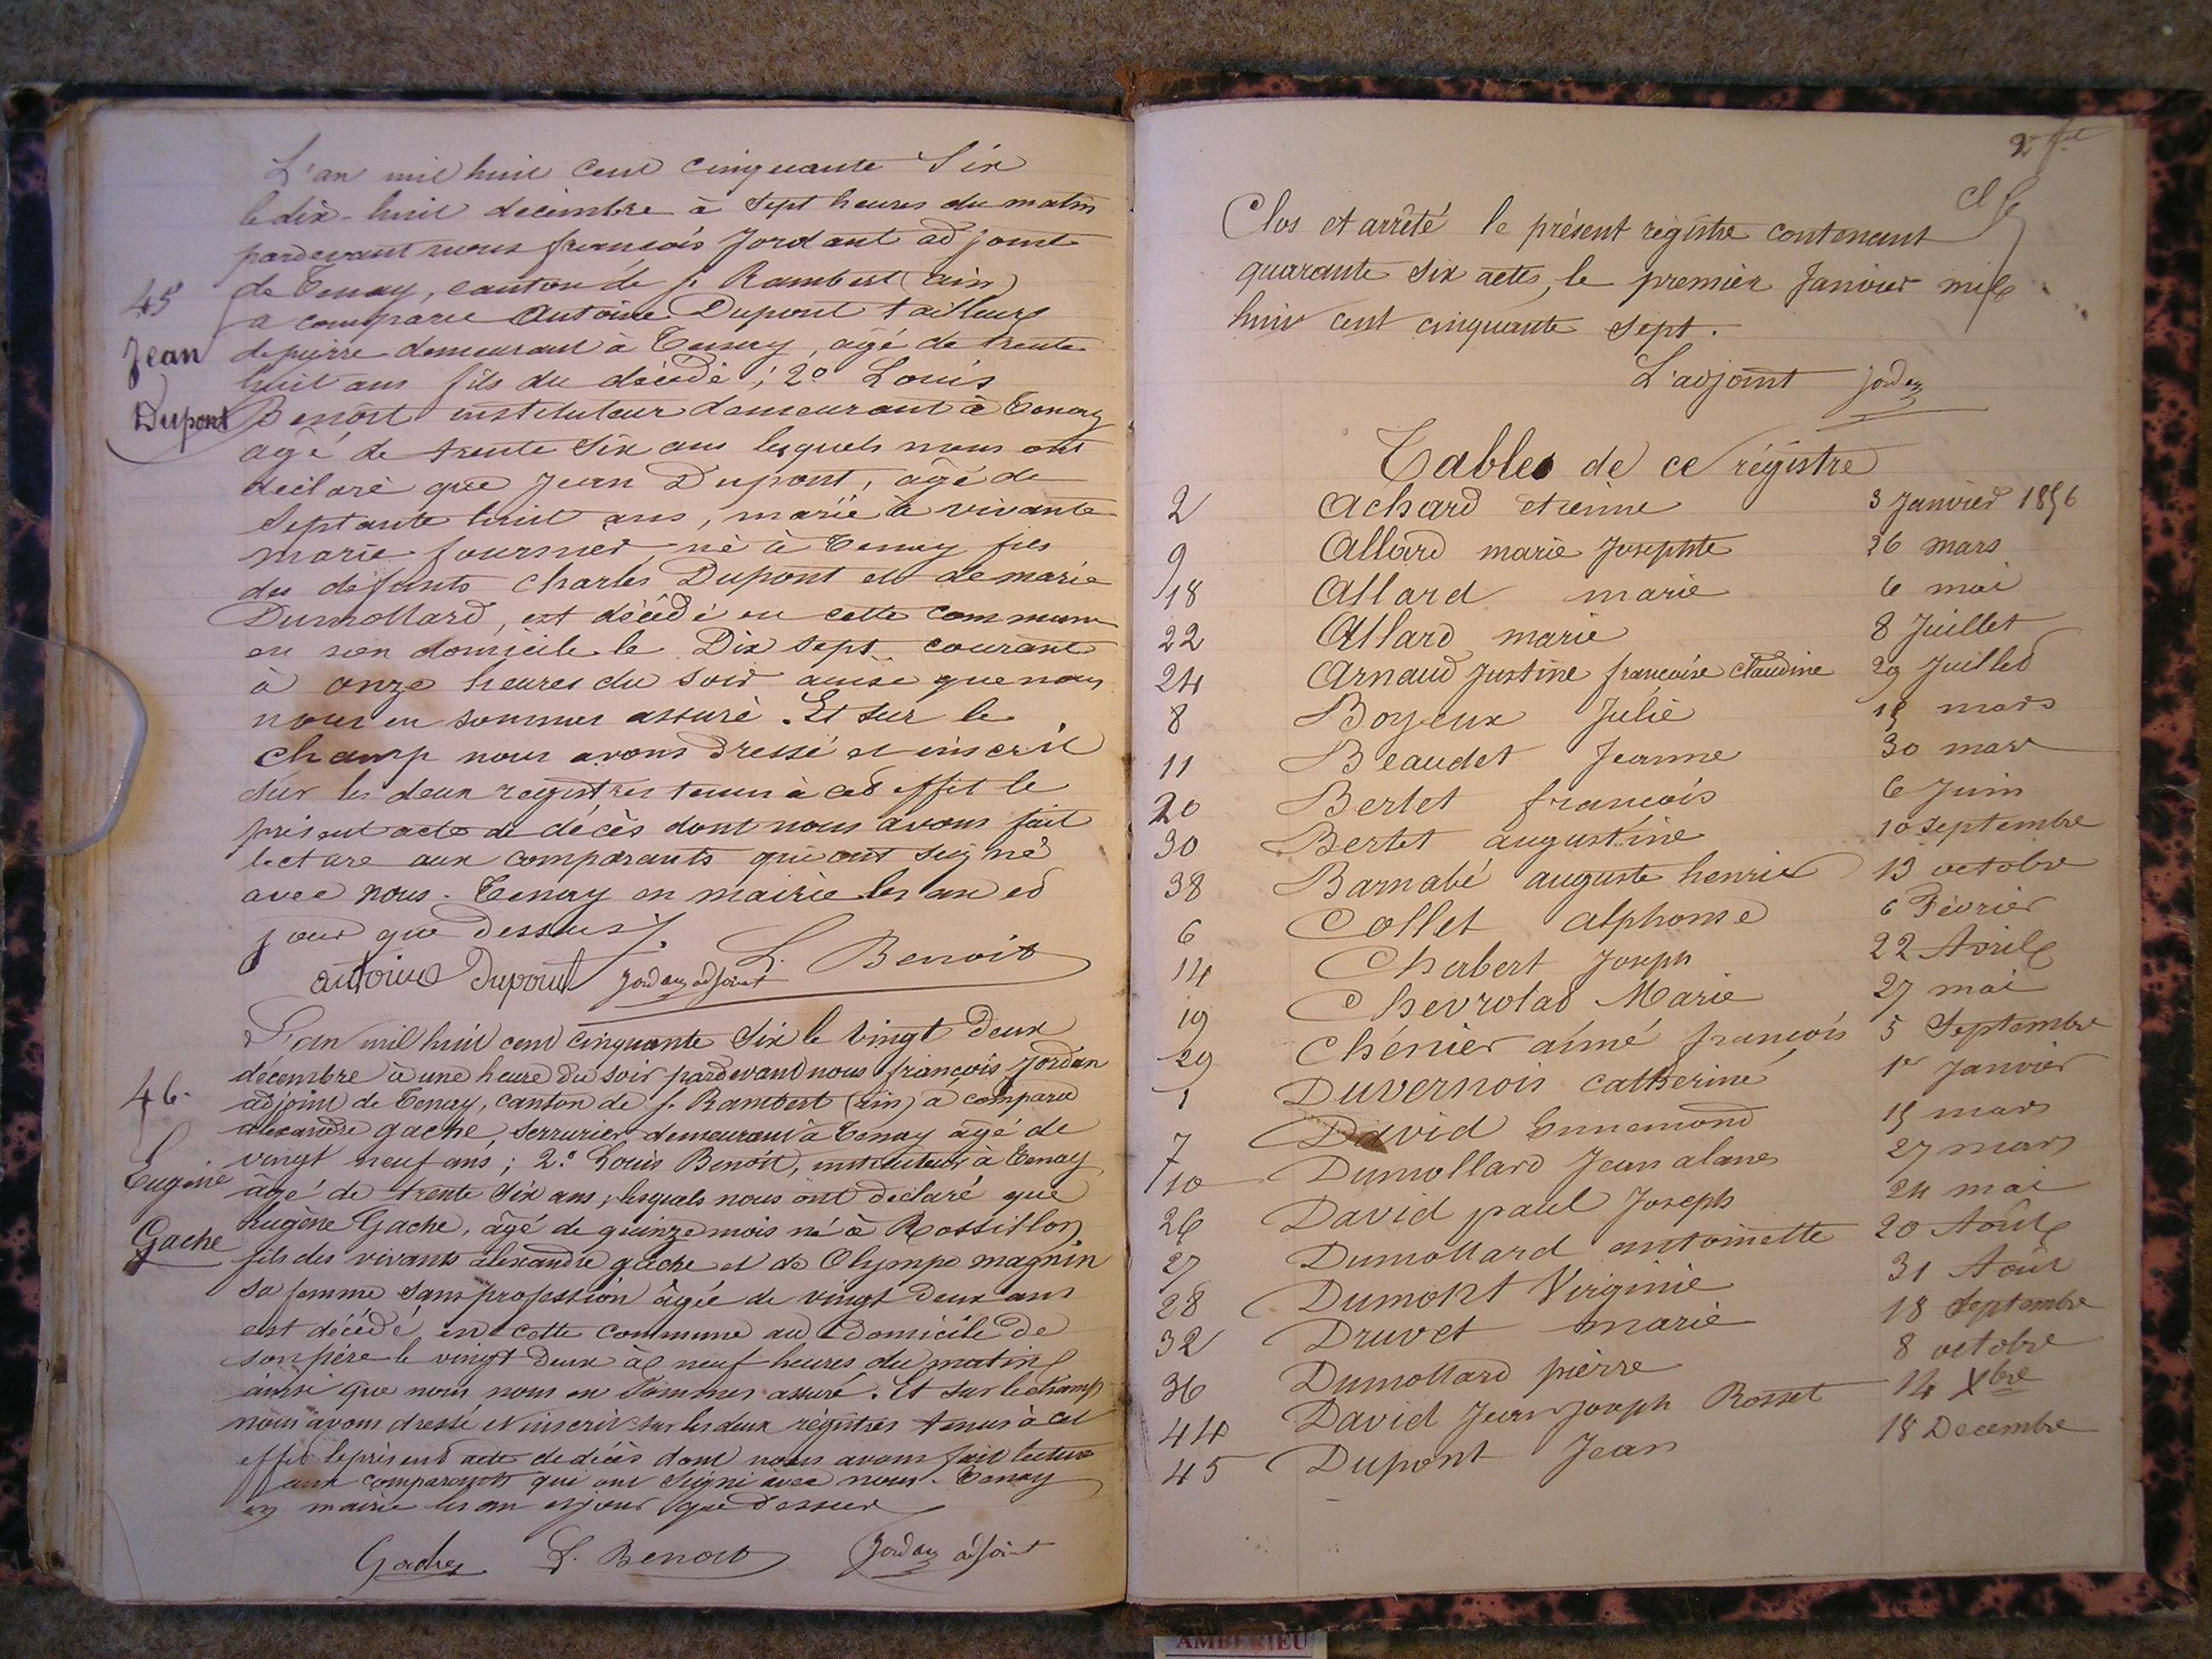 L'an mil huit cent cinquante Six
le dix-huit décembre à Sept heures du matin
pardevant nous françois Jordant adjoint
de Tenay, canton de St Rambert (ain)
a comparu Antoine Dupont tailleur
de pierre demeurant à Tenay, âgé de trente
huit ans fils du décédé ; 2º Louis
Benoît instituteur demeurant à Tenay
âgé de trente Six ans lesquels nous ont
déclaré que Jean Dupont, âgé de
Septante huit ans, marié à vivante
marie fournier, né à Tenay fils
des défunts Charles Dupont et de marie
Dumollard, est décédé en cette commune
en son domicile le Dix sept courant
à onze heures du soir ainsi que nous
nous en sommes assuré. Et sur le
champ nous avons dressé et inscrit
sur les deux registres tenus à cet effet le
présent acte de décès dont nous avons fait
lecture aux comparants qui ont signé
avec nous. Tenay en mairie les an et
jour que dessus
45
Jean
Dupont
antoine Dupont Jordan adjoint L. Benoit
L'an mil huit cent cinquante Six le vingt deux
décembre à une heure du soir pardevant nous françois Jordan
adjoint de Tenay, canton de St Rambert (ain) a comparu
alexandre gache, serrurier demeurant à Tenay âgé de
vingt neuf ans ; 2º Louis Benoît, instituteur à Tenay
âgé de trente Six ans, lesquels nous ont déclaré que
Eugène Gache, âgé de quinze mois né à Rossillon
fils des vivants alexandre gache et de Olympe magnin
sa femme sans profession âgée de vingt deux ans
est décédé en cette commune au domicile de
son père le vingt deux à neuf heures du matin
ainsi que nous nous en sommes assuré. Et sur le champ
nous avons dressé et inscrit sur les deux régistres tenus à cet
effet le présent acte de décès dont nous avons fait lecture
aux comparants qui ont signé avec nous. Tenay
en mairie les an et jour que dessus
46.
Eugène
Gache
Gache L. Benoit Jordan adjoint
Clos et arrêté le présent régistre contenant
quarante six actes, le premier Janvier mil
huit cent cinquante sept.
L'adjoint Jordan
Tables de ce régistre
2 Achard etienne 3 Janvier 1856
9 Allard marie Josephte 26 mars
18 Allard marie 6 mai
22 Allard marie 8 Juillet
24 Arnaud Justine françoise Claudine 29 Juillet
8 Boyeux Julie 15 mars
11 Beaudet Jeanne 30 mars
20 Bertet françois 6 Juin
30 Bertet augustine 10 septembre
38 Barnabé auguste henri 13 octobre
6 Collet alphonse 6 Février
14 Chabert Joseph 22 Avril
19 Chevrolat Marie 27 mai
29 Chénier aimé françois 5 Septembre
1 Duvernois catherine 1er Janvier
7 David Ennemond 15 mars
10 Dumollard Jean 27 mars
26 David paul Joseph 24 mai
27 Dumollard antoinette 20 Août
28 Dumont Virginie 31 Août
32 Druvet marie 18 septembre
36 Dumollard pièrre 8 octobre
44 David Jean Joseph Rosset 14 Xbre
45 Dupont Jean 18 Decembre
AMBERIEU